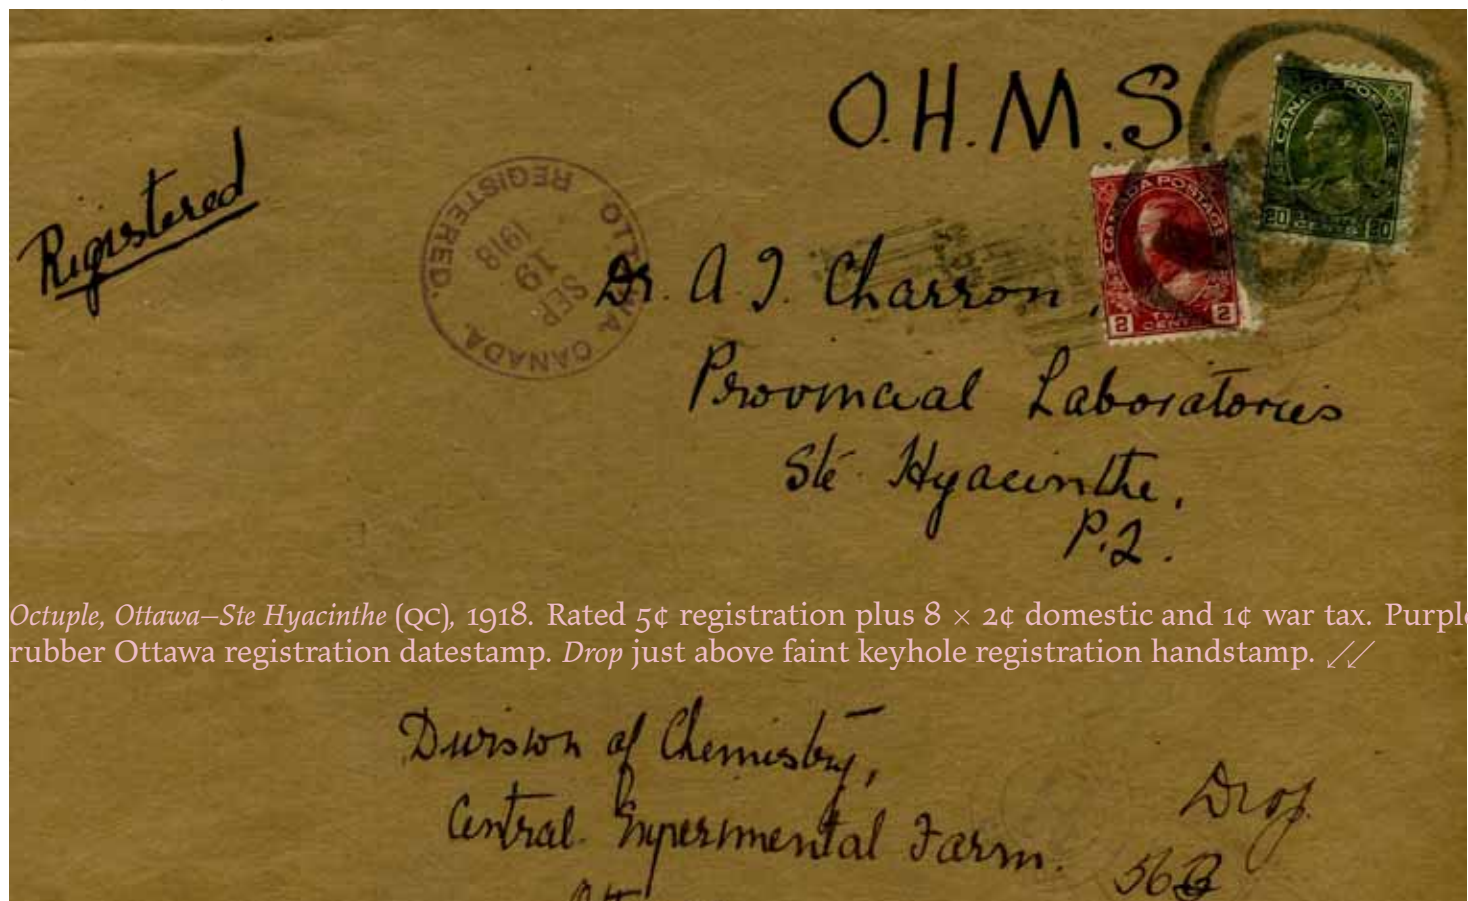 O.H.M.S.
CANADA POSTAGE
20 CENTS 20
Registered
CANADA POSTAGE
2 TWO CENTS 2
REGISTERED.
CANADA
SEP
19
1918
Dr. A. T. Charron,
Provincial Laboratories
Ste Hyacinthe,
P.Q.
Octuple, Ottawa–Ste Hyacinthe (QC), 1918. Rated 5¢ registration plus 8 × 2¢ domestic and 1¢ war tax. Purple
rubber Ottawa registration datestamp. Drop just above faint keyhole registration handstamp.
Division of Chemistry,
Central Experimental Farm.
Drop